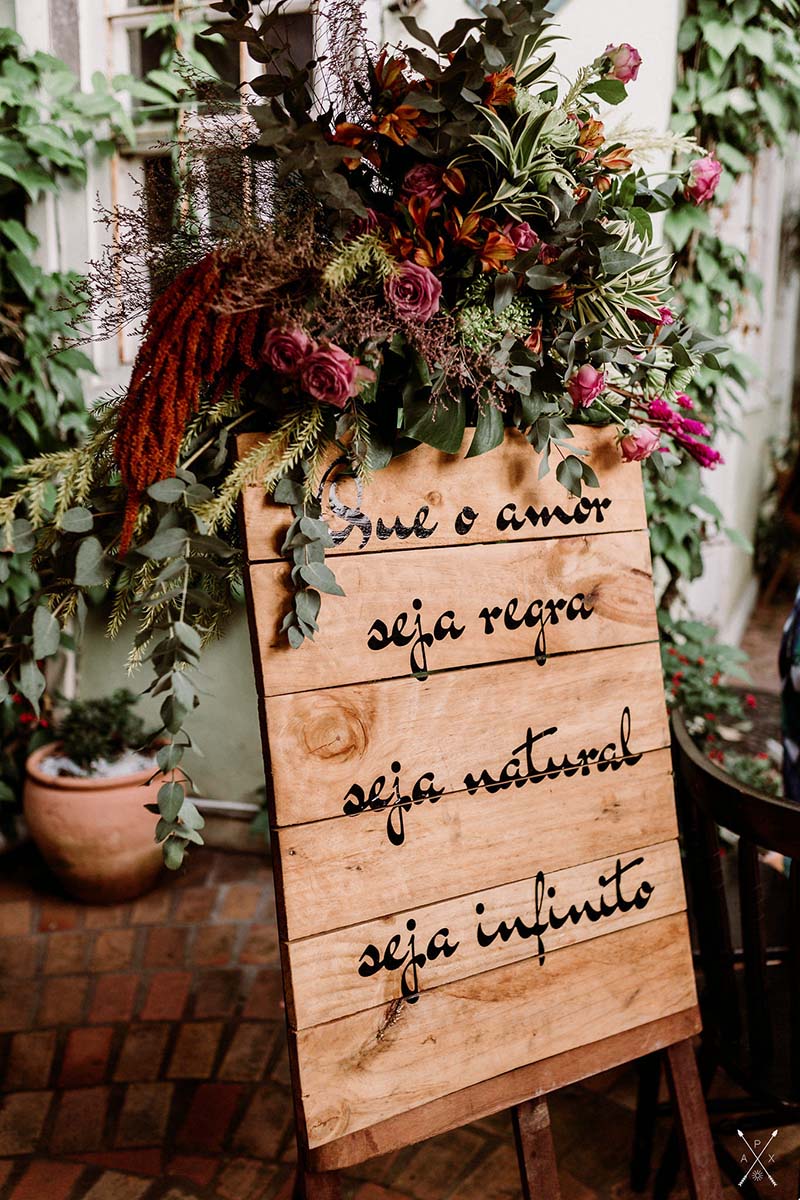 Que o amor
seja regra
seja natural
seja infinito
A P X